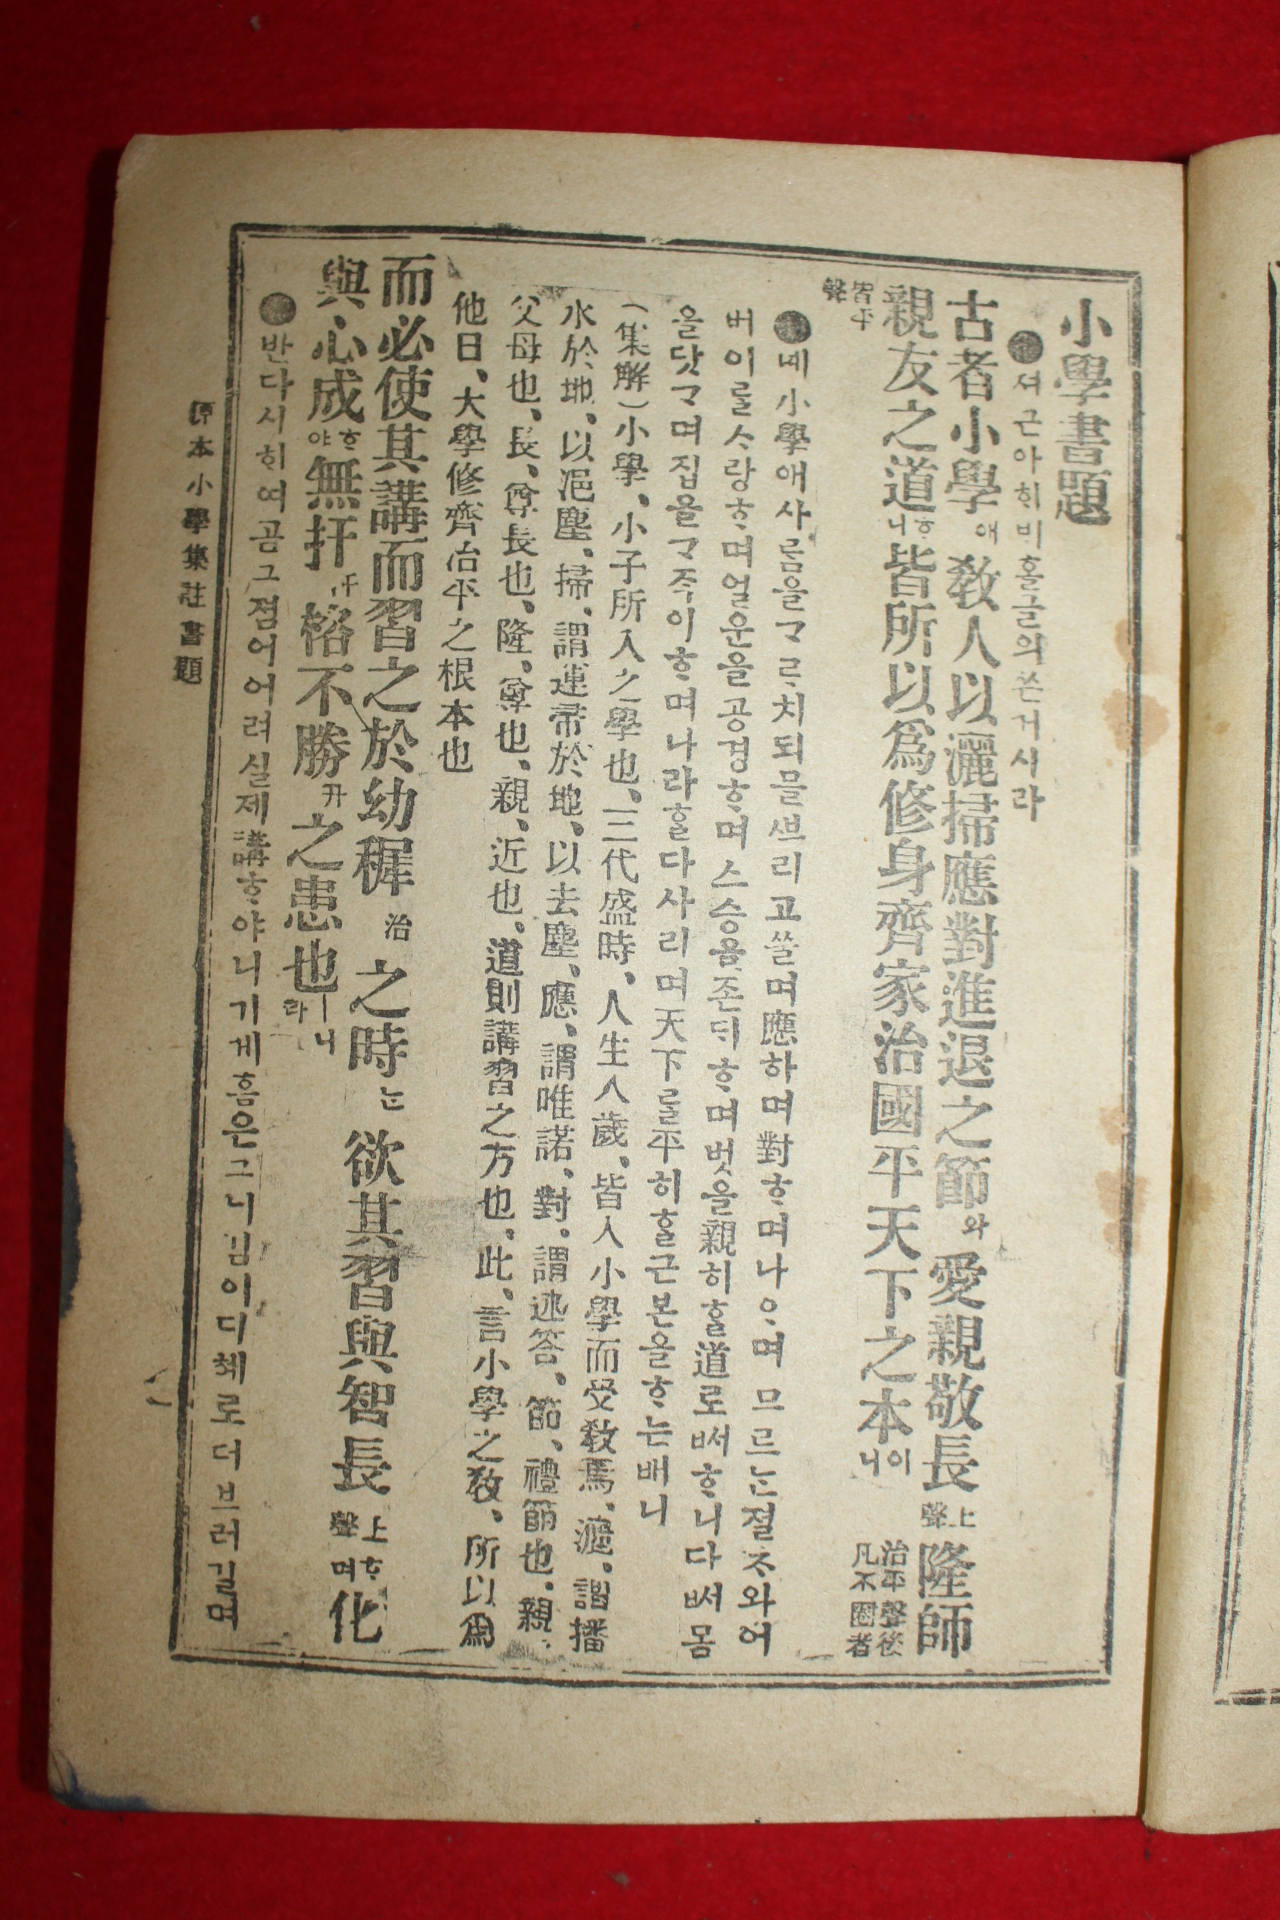 小學書題
셔근아ᄒᆡ비홀글의쓴거시라
古者小學애敎人以灑掃應對進退之節와愛親敬長上聲隆師
親友之道ᄒᆞ니皆所以爲修身齊家治國平天下之本이니治平聲後凡不圈者
皆平聲
녜小學애사ᄅᆞᆷ을ᄀᆞᄅᆞ치되믈ᄲᅮ리고ᄡᅳᆯ며應하며對ᄒᆞ며나ᄋᆞ며므르ᄂᆞᆫ졀ᄎᆞ와어
버이ᄅᆞᆯᄉᆞ랑ᄒᆞ며얼운을공경ᄒᆞ며스승을존ᄃᆡᄒᆞ며벗을親히ᄒᆞᆯ道로ᄡᅥᄒᆞ니다ᄡᅥ몸
을닷ᄀᆞ며집을ᄀᆞᄌᆞᆨ이ᄒᆞ며나라흘다사리며天下ᄅᆞᆯ平히ᄒᆞᆯ근본을ᄒᆞᄂᆞᆫ배니
(集解)小學、小子所入之學也、三代盛時、人生八歲、皆入小學而受敎焉、灑、謂播
水於地、以浥塵、掃、謂運帚於地、以去塵、應、謂唯諾、對、謂述答、節、禮節也、親、
父母也、長、尊長也、隆、尊也、親、近也、道則講習之方也、此、言小學之敎、所以爲
他日、大學修齊治平之根本也
而必使其講而習之於幼穉治之時ᄂᆞᆫ欲其習與智長上聲ᄒᆞ며化
與心成ᄒᆞ야無扞汗格不勝升之患也ㅣ니라
반다시ᄒᆡ여곰그졈어어려실제講ᄒᆞ야니기게홈은그니김이디혜로더브러길며
原本小學集註書題